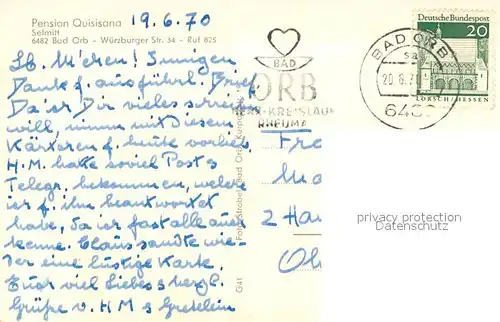 Pension Quisisana
Selmitt
6482 Bad Orb - Würzburger Str. 34 - Ruf 825
19.6.70
Lb. M'chen! Innigen
Dank f. ausführl. Brief
Da ier Dir vieles schreib
will, nimm mit diesem
Kärtchen f. heute vorlieb.
H.M. hatte soviel Post &
Telegr. bekommen, welche
ier f. ihn beantwortet
habe, da ier fast alle auer
kenne. Claus sandte wie-
der eine lustige Karte.
Euer viel Liebes & herzl.
Grüße v. H M & Gretelein
BAD
ORB
HERZ-KREISLAUF
RHEUMA
BAD ORB
20.6.70
Deutsche Bundespost
20
LORSCH/HESSEN
Foto Ströher, Bad Orb, Kurpark
G41
Fr
2 Ha
privacy protection
Datenschutz